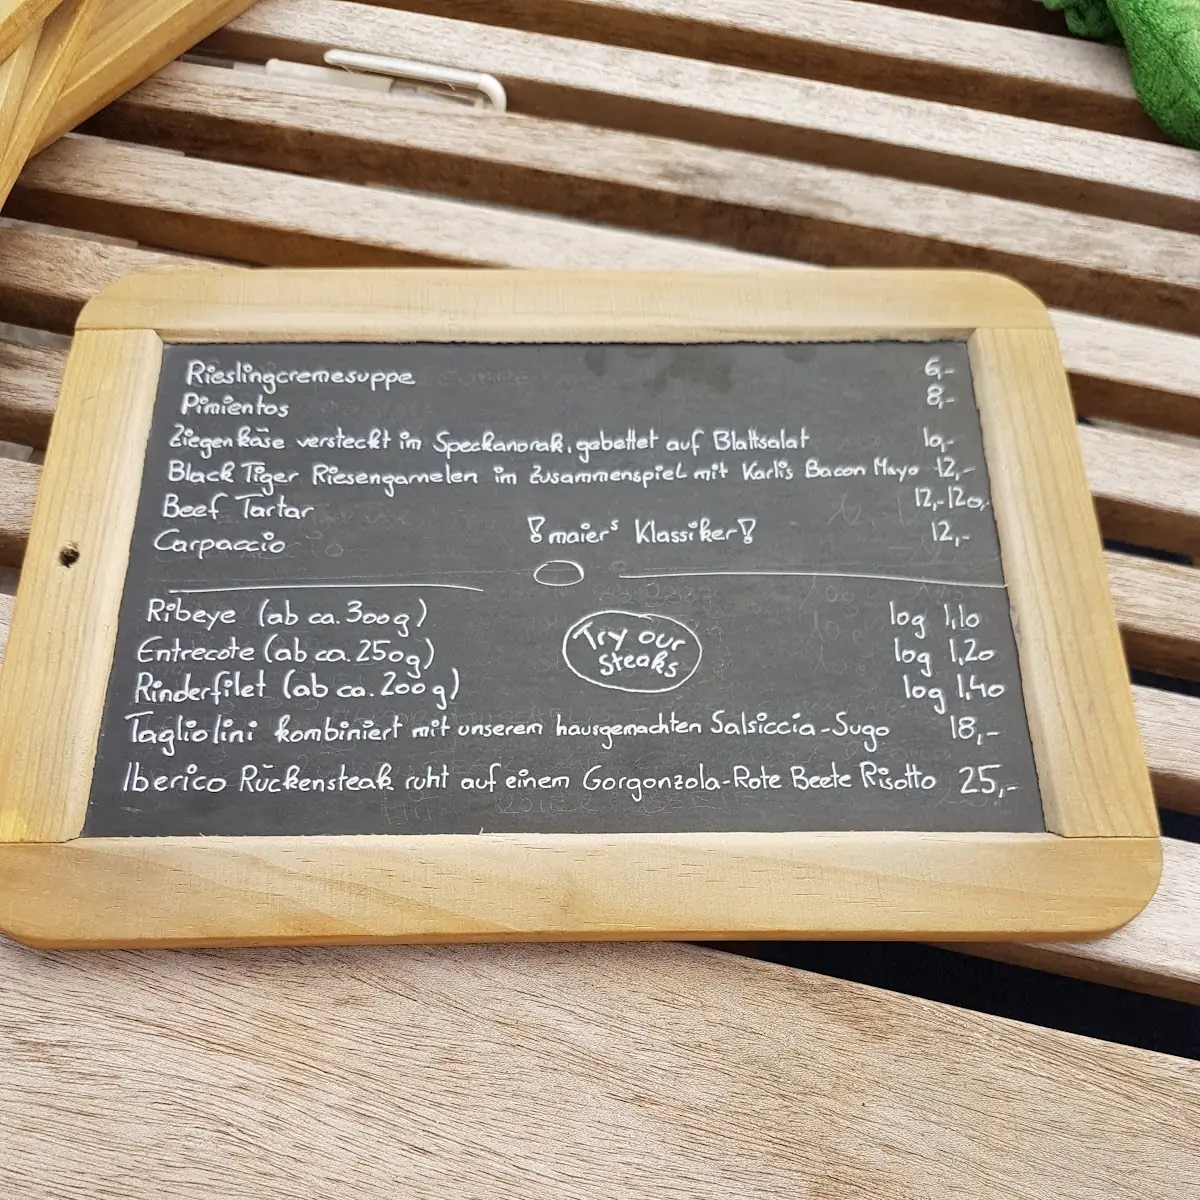 Rieslingcremesuppe 6,-
Pimientos 8,-
Ziegenkäse versteckt im Speckanorak, gebettet auf Blattsalat 10,-
Black Tiger Riesengarnelen im Zusammenspiel mit Karlis Bacon Mayo 12,-
Beef Tartar 12,-120,-
Carpaccio !maier's Klassiker! 12,-
Ribeye (ab ca. 300g) 10g 1,10
Try our
Steaks
Entrecote (ab ca. 250g) 10g 1,20
Rinderfilet (ab ca. 200g) 10g 1,40
Tagliolini kombiniert mit unserem hausgemachten Salsiccia-Sugo 18,-
Iberico Rückensteak ruht auf einem Gorgonzola-Rote Beete Risotto 25,-